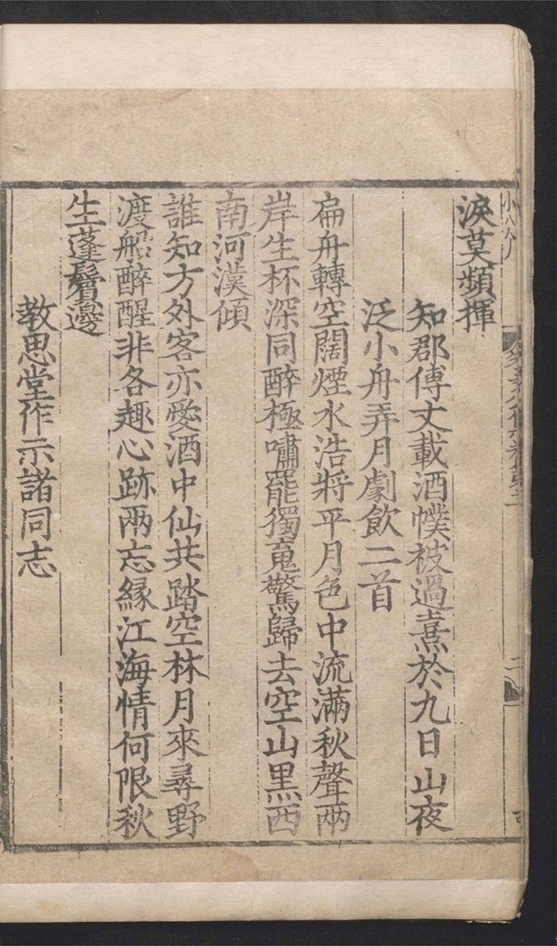 淚莫頻揮
知郡傅丈載酒幞被過熹於九日山夜
泛小舟弄月劇飲二首
扁舟轉空闊煙水浩將平月色中流滿秋聲兩
岸生杯深同醉極嘯罷獨䰟驚歸去空山黑西
南河漢傾
誰知方外客亦愛酒中仙共踏空林月來尋野
渡船醉醒非各趣心跡兩忘緣江海情何限秋
生蓬鬢邊
教思堂作示諸同志